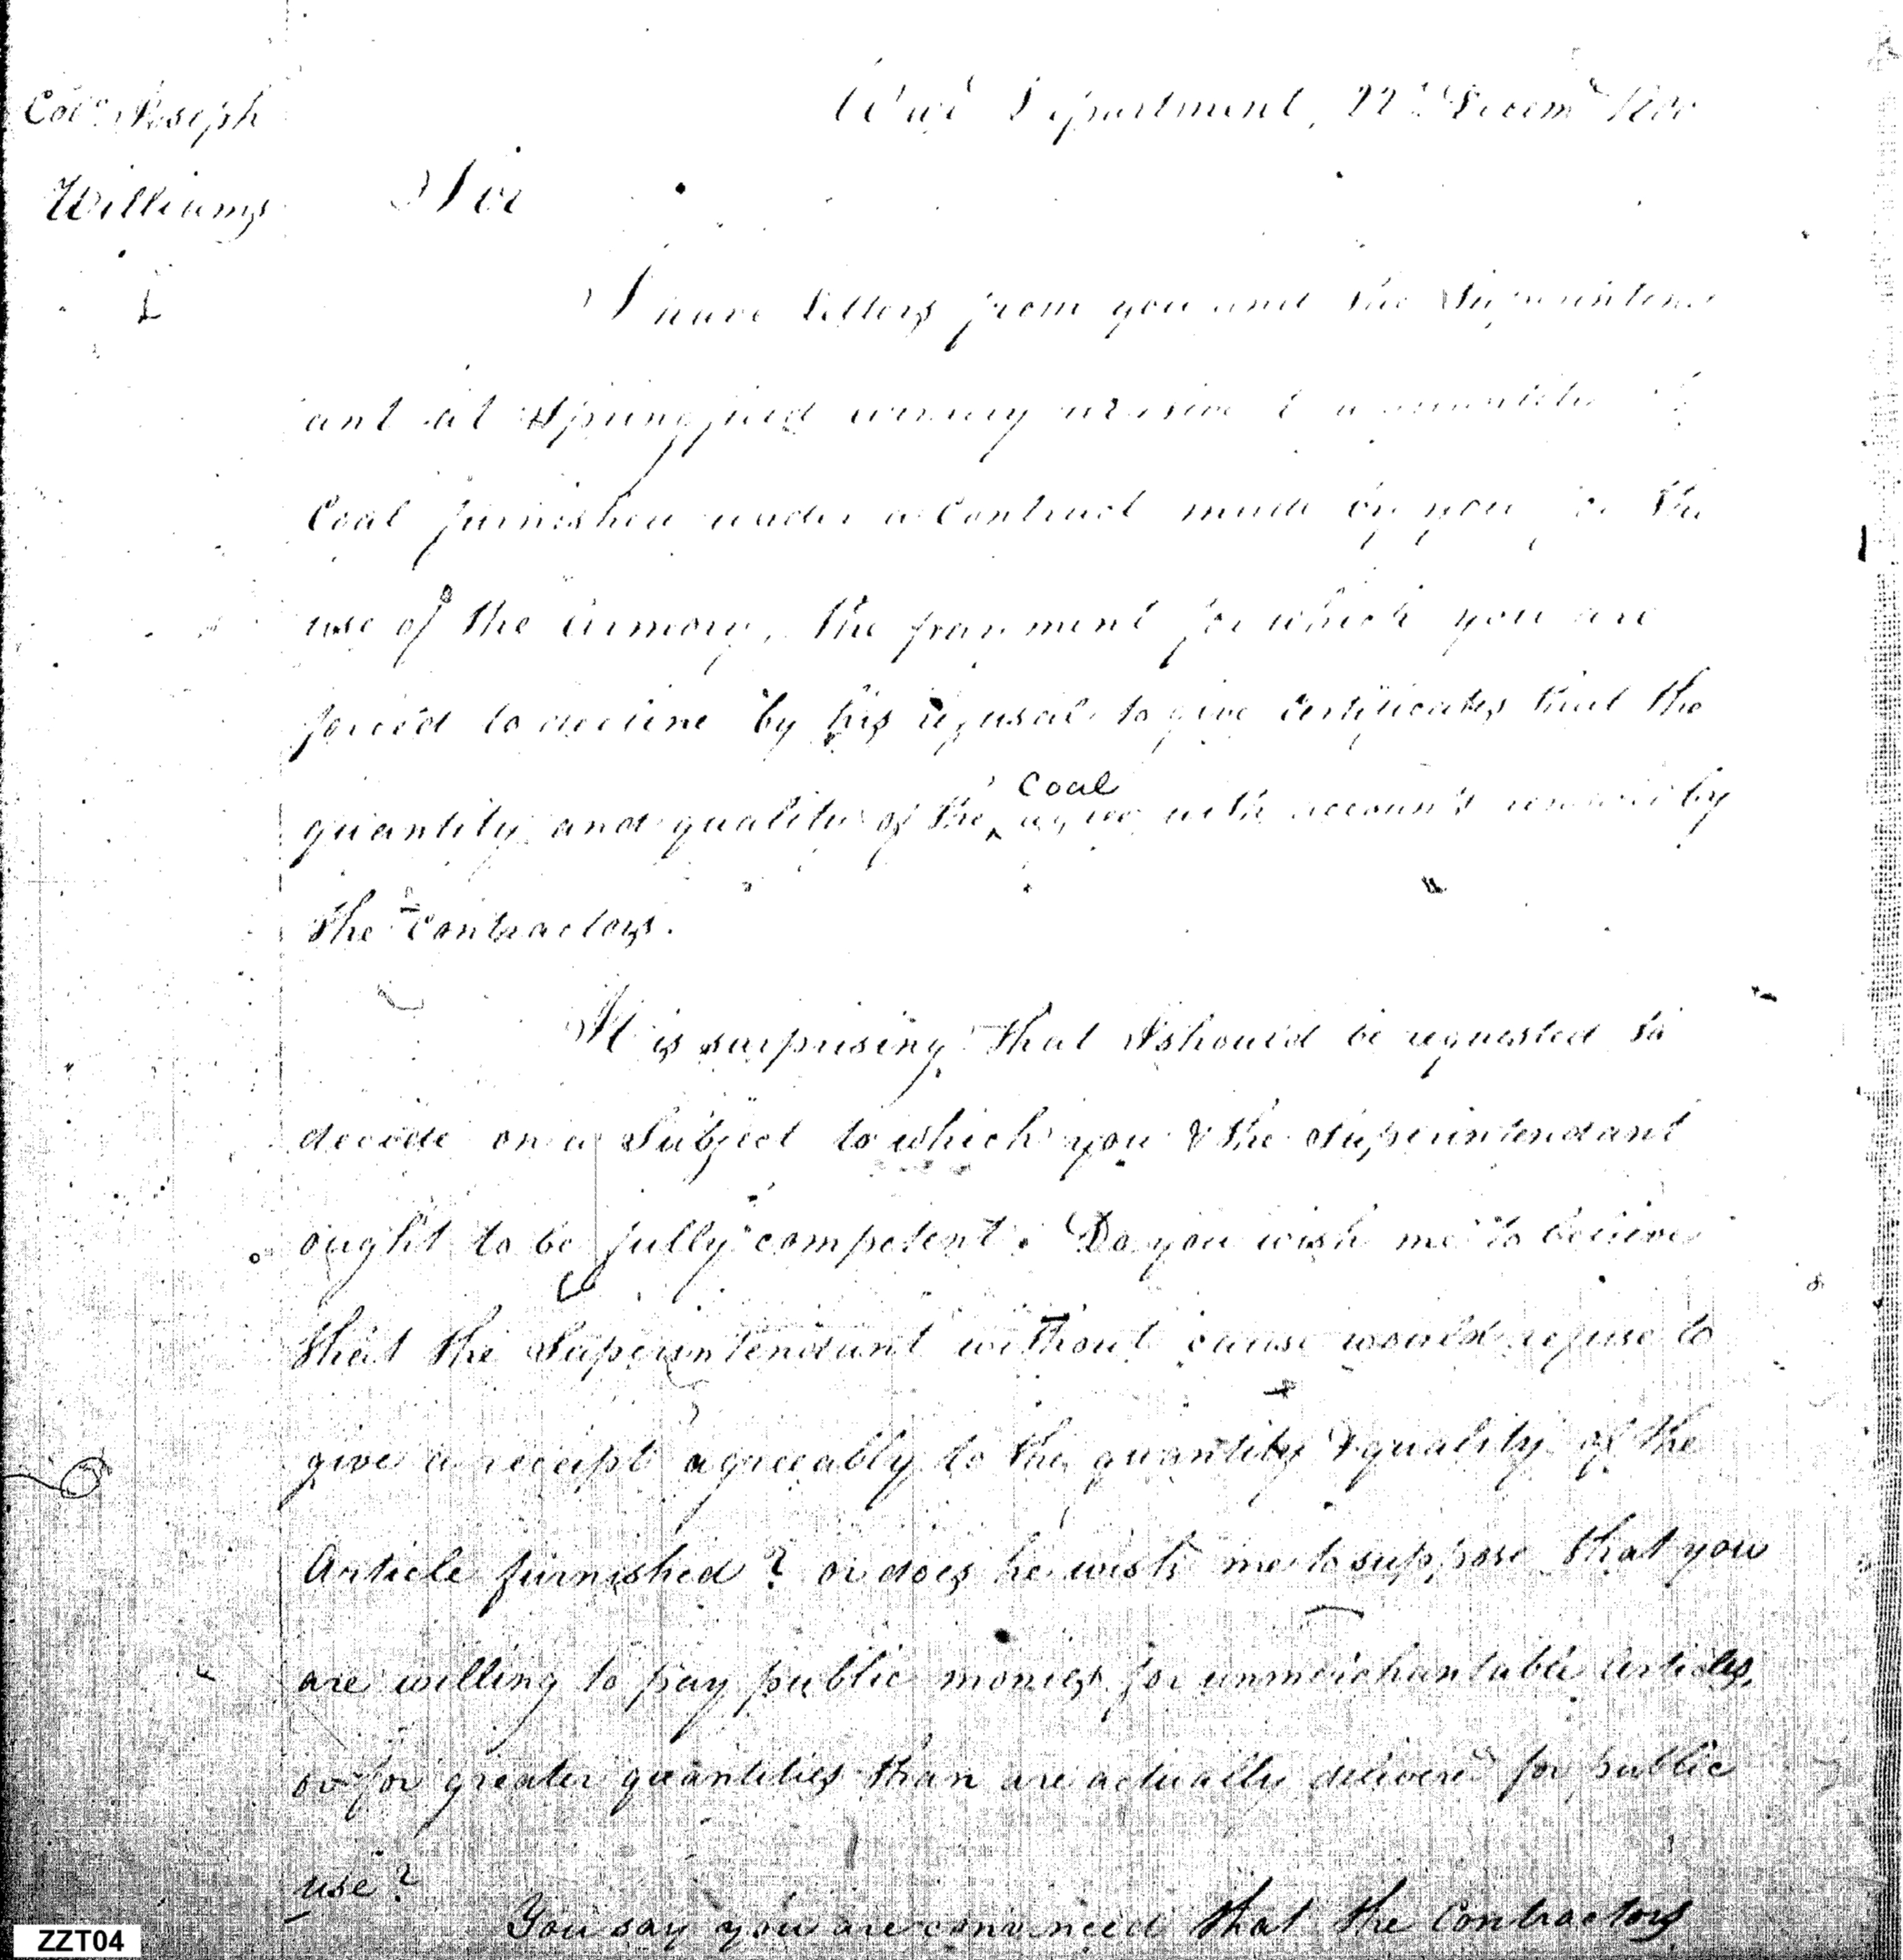 Col.o Joseph
Williams
War Department, 22d Decemr 1800
Sir
I have Letters from you and the Superintend
ant at Springfield
Coal furnished under a Contract made by you for the
use of the Armory, the payment for which you are
forced to decline by his refusal to give Certificates that the
quantity and quality of the Coal agree with account rendered by
the Contractors.
It is surprising that I should be requested to
decide on a Subject to which you & the Superintendant
ought to be fully competent. Do you wish me to believe
that the Superintendant without cause would refuse to
give a receipt agreeably to the quantity & quality of the
Article furnished? or does he wish me to suppose that you
are willing to pay public monies for unmerchantable Articles,
or for greater quantities than are actually delivered for public
use?
You say you are convinced that the Contractors
ZZT04